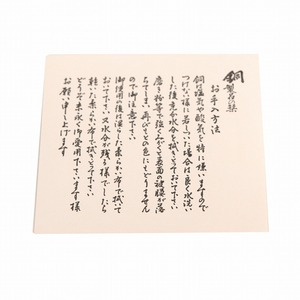 銅製品の
お手入れ方法
銅は塩気や酸気を特に嫌いますので
つけない様に若しついた場合は良く水洗い
した後充分水分を拭きとっておいて下さい
磨き粉等で強くみがくと表面の被膜が落
ちてしまい再びもとの色にもどりません
ので御注意下さい
御使用の後は湿らした柔らか布で拭いて
おいて下さい又水分が残る様でしたら
乾いた柔らか布で拭きとって下さい
どうぞ末永く御愛用下さいます様
お願い申し上げます